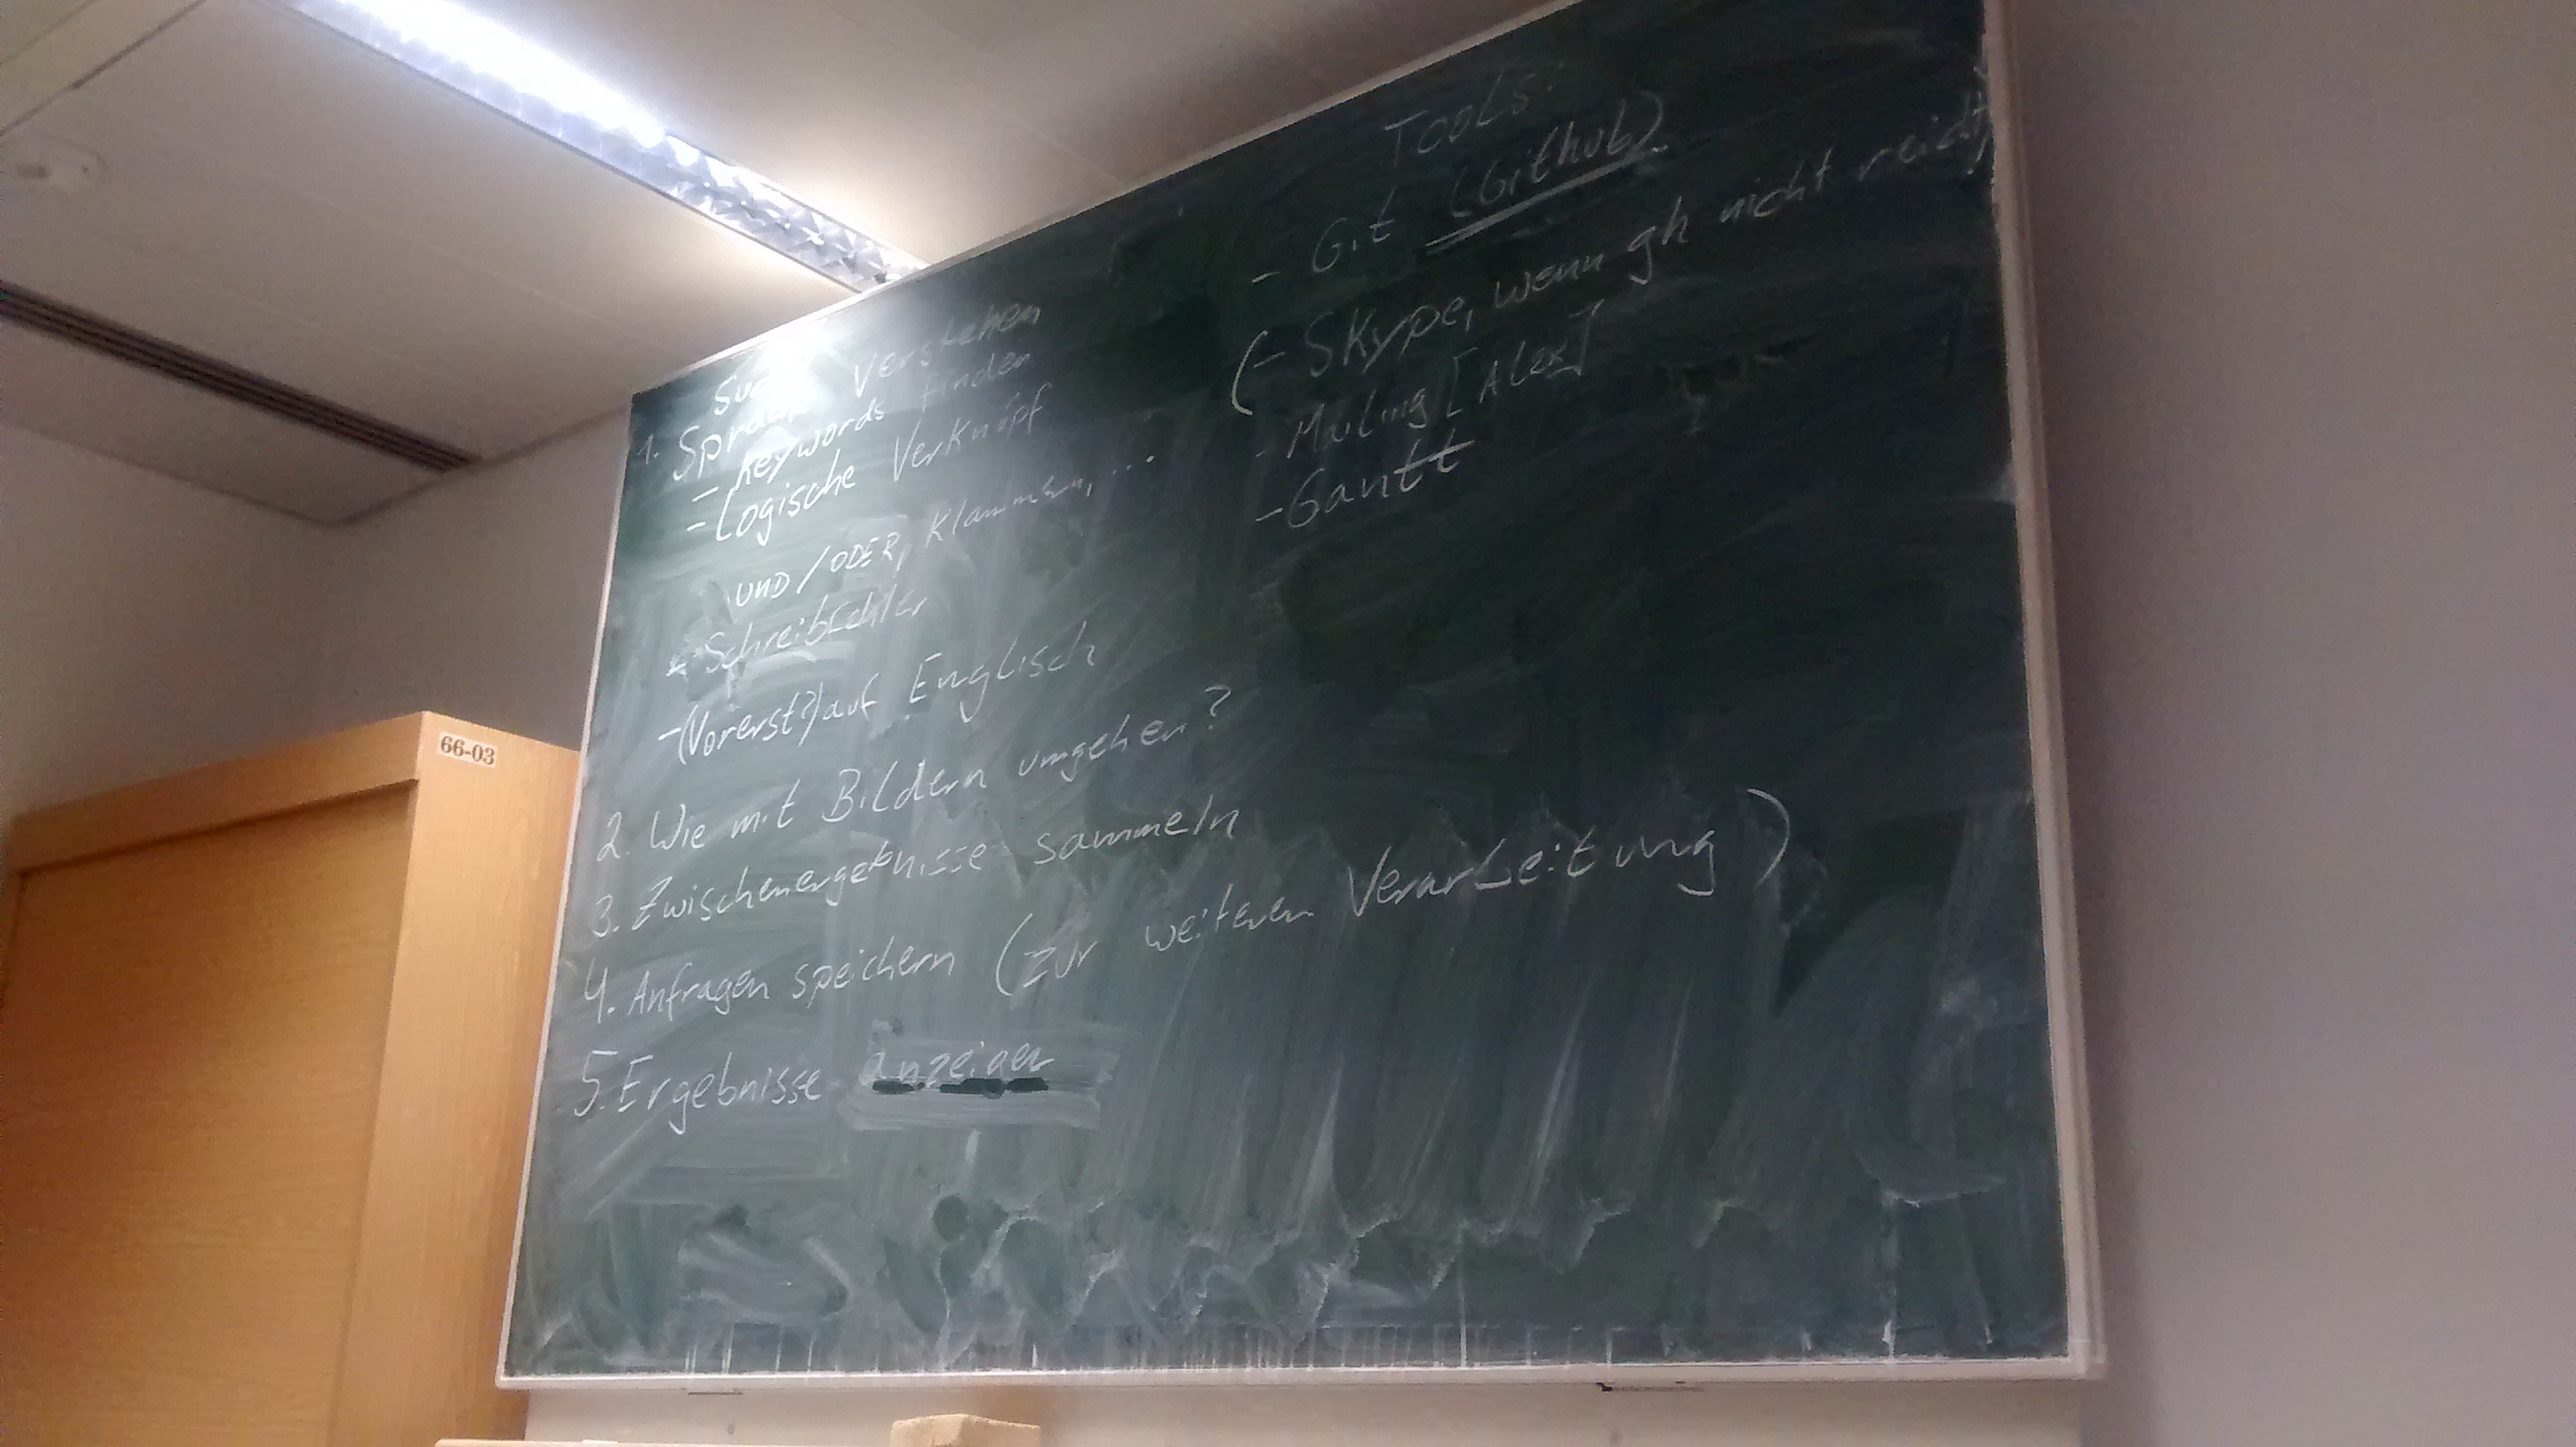 Suche
1. Sprache verstehen
- Keywords finden
- Logische Verknüpf
UND/ODER, Klammern, ...
- Schreibfehler
- (Vorerst?) auf Englisch
2. Wie mit Bildern umgehen?
3. Zwischenergebnisse sammeln
4. Anfragen speichern (zur weiteren Verarbeitung)
5. Ergebnisse anzeigen
Tools:
- Git (Github)
(- Skype, wenn gh nicht reicht)
- Mailing [Alex]
- Gantt
66-03